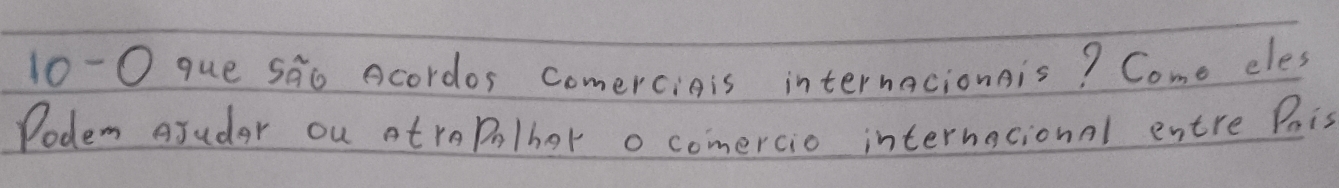 10 - O que são Acordos comerciais internacionais? Como eles
Podem AJudar ou atrapalhar o comercio internacional entre Pais